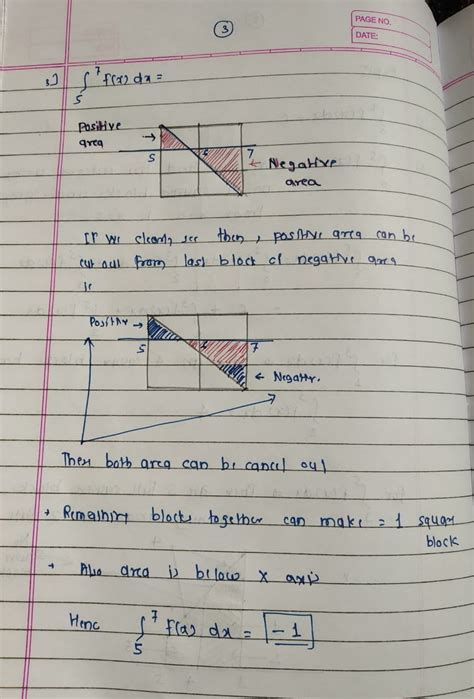 3
PAGE NO.
DATE:
3.] ∫₅⁷ f(x) dx =
Positive
area
5
6
7
← Negative
area
If we clearly see then, positive area can be
cut out from last block of negative area
ie
Positiv →
5
6
7
← Negativ.
Then both area can be cancel out
→ Remaining blocks together can make = 1 squar
block
→ Also area is below x axis
Henc ∫₅⁷ f(x) dx = -1